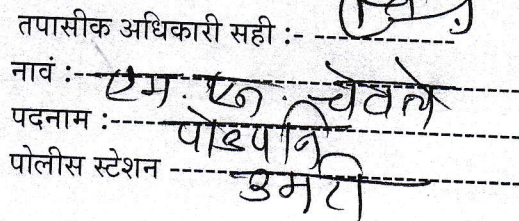 तपासीक अधिकारी सही :-
नावं :- एम. एन. चेवले
पदनाम :- पोउपनि
पोलीस स्टेशन उमरी